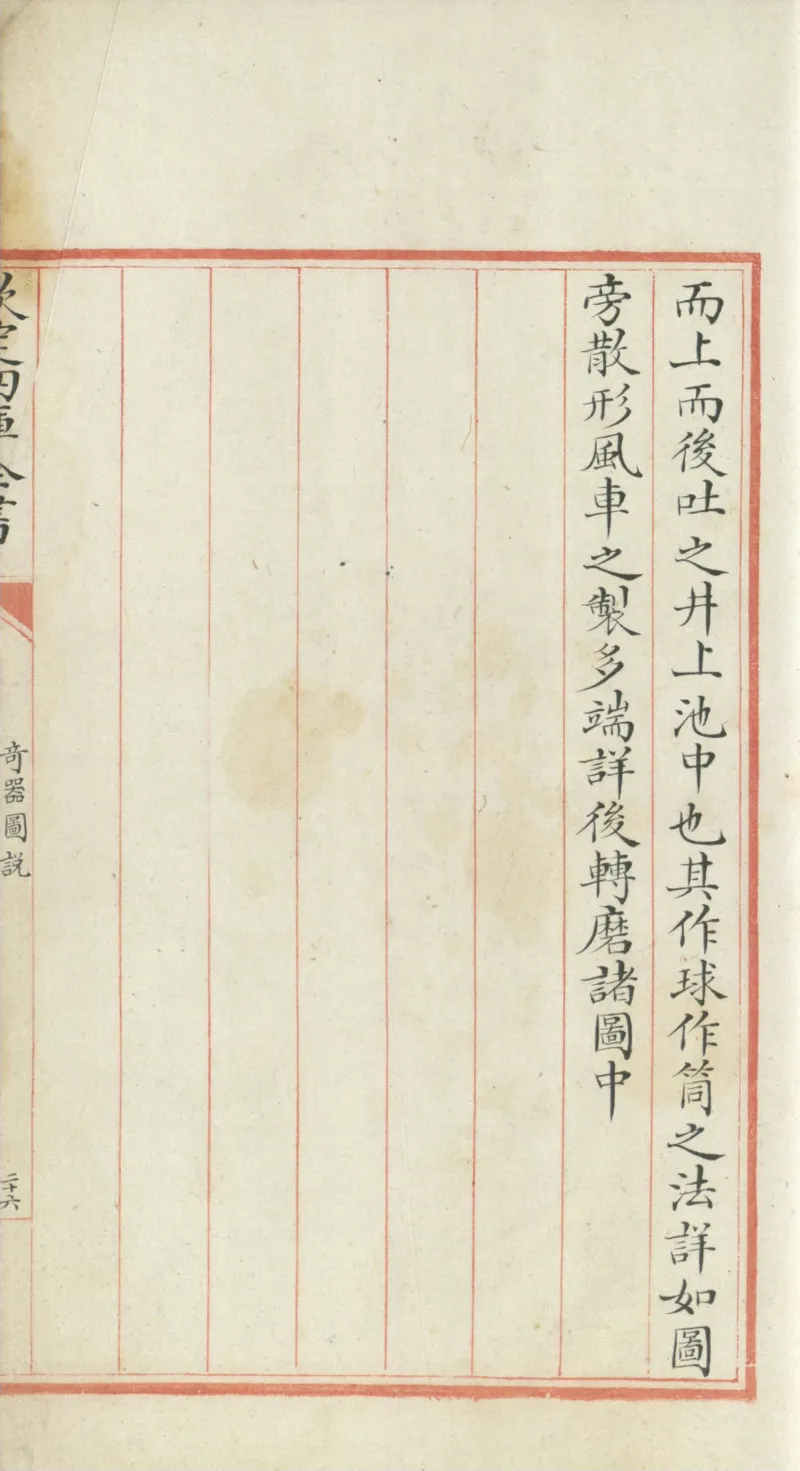 而上而後吐之井上池中也其作球作筒之法詳如圖
旁散形風車之製多端詳後轉磨諸圖中
欽定四庫全書
奇器圖説
二十六